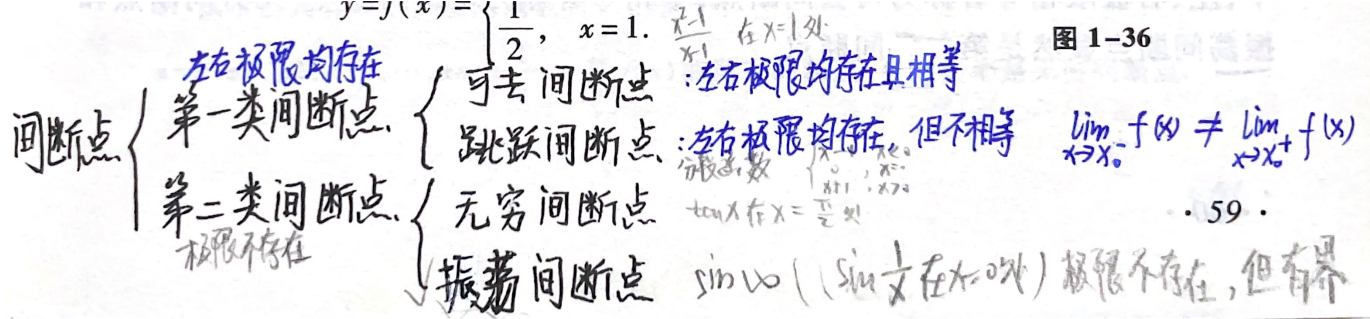 y=f(x)={ 1/2, x=1.
x²-1/x-1 在x=1处
图 1-36
左右极限均存在
可去间断点 :左右极限均存在且相等
间断点 第一类间断点
跳跃间断点 :左右极限均存在,但不相等 lim x→x₀⁻ f(x) ≠ lim x→x₀⁺ f(x)
分段函数 { x-1, x<0
0, x=0
x+1, x>0
第二类间断点 无穷间断点 tanx在x=π/2处
· 59 ·
极限不存在
振荡间断点 sin∞ (sin 1/x 在x=0处) 极限不存在,但有界